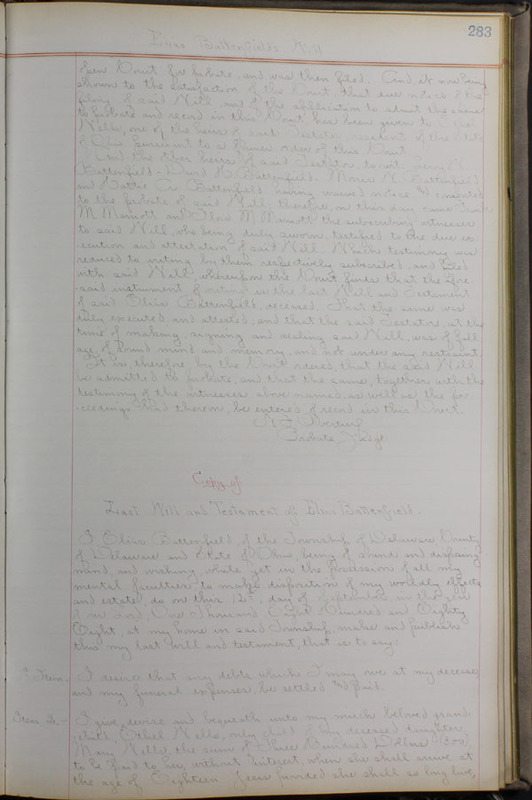 283
Elias Battenfield's Will
Open Court for probate, and was then filed. And, it now being
shown to the satisfaction of the Court that due notice of the
filing of said Will and of the application to admit the same
to probate and record in this Court has been given to
Wells, one of the heirs of said Testator resident of the State
of Ohio pursuant to a former order of this Court
And the other heirs of said Testator to wit,
Battenfield - David Battenfield. Battenfield
and Battenfield having waived notice & consented
to the probate of said Will; therefore, on this day came
M. Marriott and M Marriott the subscribing witnesses
to said Will, who being duly sworn, testified to the due ex-
ecution and attestation of said Will. Which testimony was
reduced to writing by them respectively subscribed, and filed
with said Will; wherefore the Court finds that the afore-
said instrument of writing is the last Will and Testament
of said Elias Battenfield, deceased. That the same was
duly executed and attested, and that the said Testator, at the
time of making, signing and sealing said Will, was of full
age, of sound mind and memory, and not under any restraint
It is, therefore, by the Court ordered, that the said Will
be admitted to probate, and that the same, together with the
testimony of the witnesses above named, as well as the pro-
ceedings had thereon, be entered of record in this Court.
Probate Judge
Copy of
Last Will and Testament of Elias Battenfield.
I Elias Battenfield of the Township of Delaware County
of Delaware and State of Ohio, being of sound and disposing
mind, and wishing while yet in the possession of all my
mental faculties to make disposition of my worldly effects
and estate, do on this 12th day of September in the year
of our Lord One Thousand Eight Hundred and Eighty
Eight, at my home in said Township, make and publish
this my last will and testament, that is to say:
Item. I desire that any debts which I may owe at my decease,
and my funeral expenses, be settled and paid.
Item 2. - I give, devise and bequeath unto my much beloved grand
child, Ethel Wells, only child of my deceased daughter
Mary Wells, the sum of Three Hundred Dollars (300)
to be paid to her, without interest, when she shall arrive at
the age of Eighteen years provided she shall so long live,